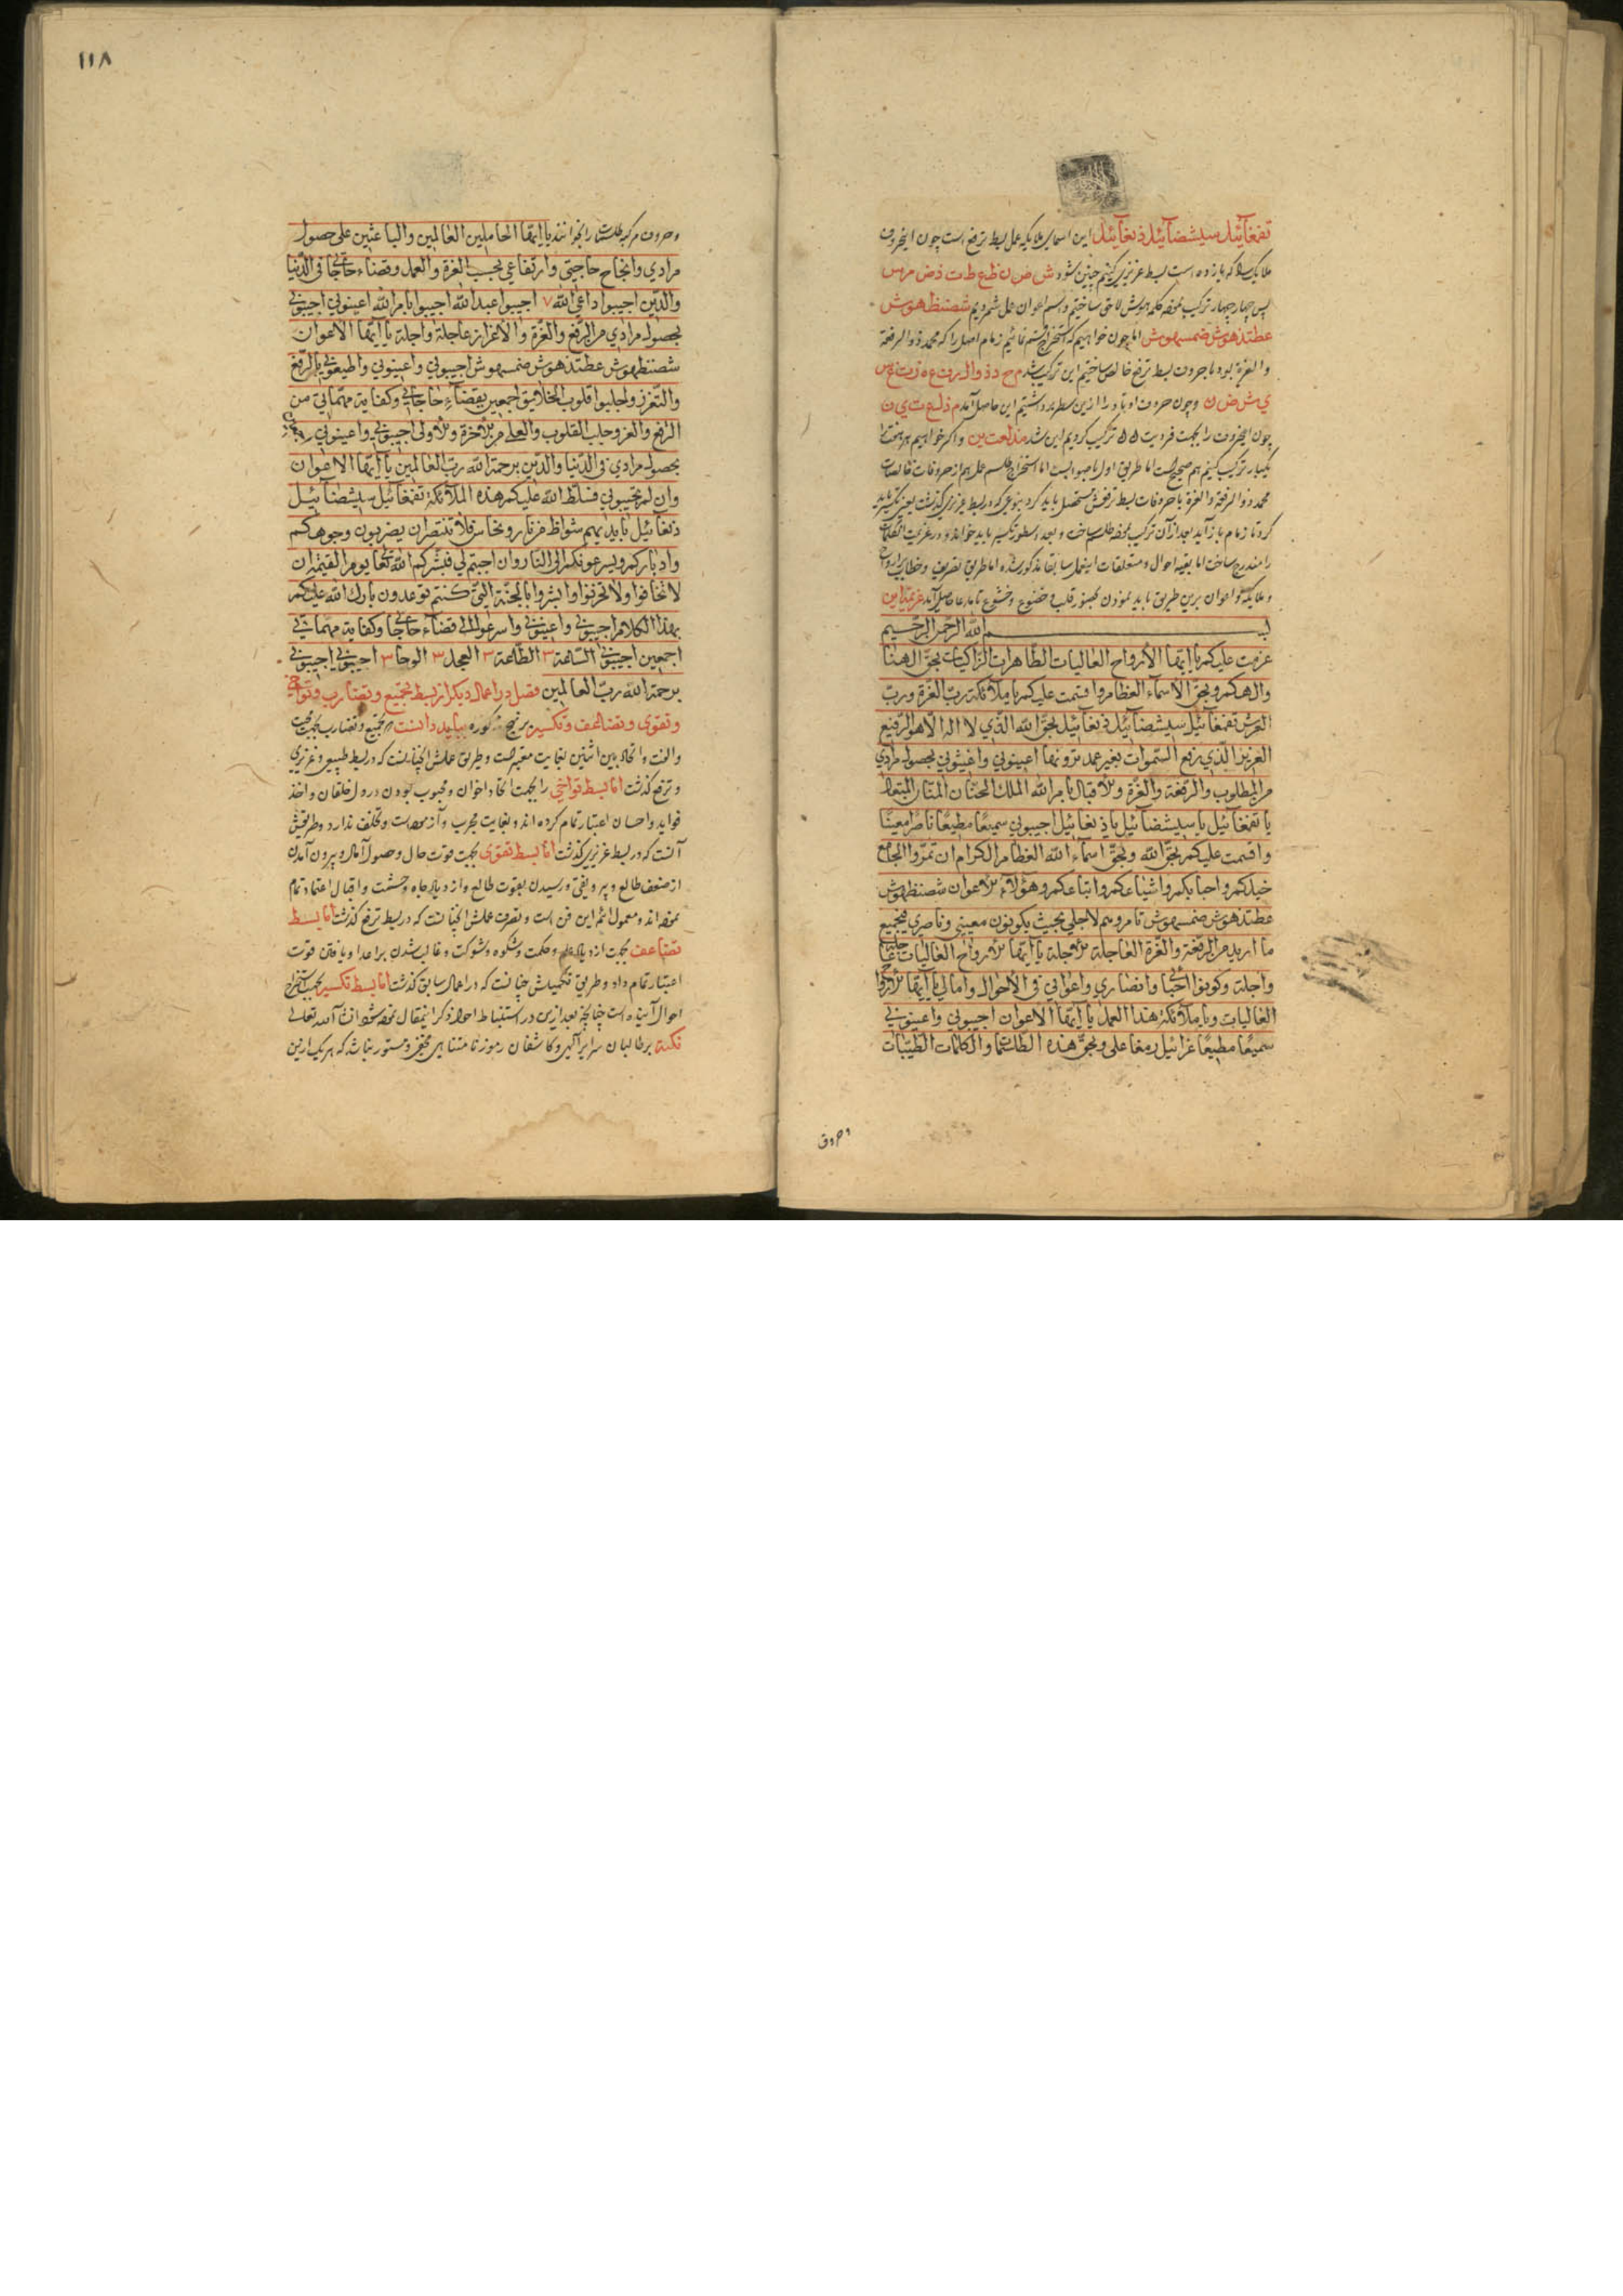 تفغائيل سيشضائيل ذنغائيل این اسمای ملایکه عمل بسط ترفع است چون این حروف
ملایک را که یازده است بسط عزیزی کنیم چنین شود ش ض ن ظ ع ط ت ذ ض م س
پس چهار چهار ترکیب نموده کلمه هوش لاحق ساختیم و اسم اعوان عمل شمردیم شضنظهوش
عطتذهوش ضمسهوش اما چون خواهیم که استخراج قسم نمائیم زمام اصل را که محمد ذو الرفعة
والعزة بود با حروف بسط ترفع خالص ساختیم این ترکیب شد م ح د ذ و ا ل ر ف ع ه ز ت غ س
ي ش ض ن و چون حروف اوتاد را ازین سطر برداشتیم این حاصل آمد م ذ ل ع ت ي ن
چون این حروف را بجهت فردیت ترکیب کردیم این شد مذلعتین و اگر خواهیم هر هفت را
یکبار ترکیب کنیم هم صحیح است اما طریق اول باصوابست اما استخراج طلسم عمل هم از حروفات خالصات
محمد ذو الرفعة والعزة با حروفات بسط ترفعش مستحصل باید کرد بنوعی که در بسط عزیزی گذشت یعنی تکسیر باید
کرد تا زمام باز آید بعد از آن ترکیب نموده طلسم ساخت و بعده سطور تکسیر باید خواند و در عزیمت این کلمات
را مندرج ساخت اما بقیه احوال و متعلقات این عمل سابقا مذکور شده اما طریق تصریف و خطاب بارواح
و ملایکه و اعوان برین طریق باید نمودن بحضور قلب و خضوع و خشوع تا مدعا حاصل آید عزیمة این
بسم الله الرحمن الرحيم
عزمت عليكم يا ايتها الأرواح العاليات الطاهرات الزاكيات بحق الهنا
والهكم وبحق الاسماء العظام واقسمت عليكم يا ملائكة رب العزة ورب
العرش تفغائيل سيشضائيل ذنغائيل بحق الله الذي لا اله الا هو الرفيع
العزيز الذي رفع السموات بغير عمد ترونها اعينوني واغيثوني بحصول مرادي
من المطلوب والرفعة والعزة والاقبال بامر الله الملك الحنان المنان المتعال
يا تفغائيل يا سيشضائيل يا ذنغائيل اجيبوني سميعا مطيعا ناصرا معينا
واقسمت عليكم بحق الله وبحق اسماء الله العظام الكرام ان تمروا الجامع
خيلكم واحبابكم واشياعكم واتباعكم وهؤلاء الاعوان شضنظهوش
عطتذهوش ضمسهوش تامروهم لاجلي بحيث يكونون معيني وناصري بجميع
ما اريد من الرفعة والعزة العاجلة والاجلة يا ايتها الارواح العاليات
واجلة وكونوا احبائي وانصاري واعواني في الاحوال وامالي يا ايتها الارواح
العاليات ويا ملائكة هذا العمل يا ايتها الاعوان اجيبوني واعينوني
سميعا مطيعا وبحق هذه الطلسمات والكلمات الطيبات
وحروف
١١٨
وحروف مرکبه طلسمات را بخوانند یا ايتها الحاملين العالمين والباعثين على حصول
مرادي وانجاح حاجتي وارتفاعي بحسب العزة والعمل وقضاء حاجاتي في الدنيا
والدين اجيبوا داعي الله ٧ اجيبوا عبد الله اجيبوا بامر الله اعينوني اجيبوني
بحصول مرادي من الرفع والعزة والاعزاز عاجلة واجلة يا ايتها الاعوان
شضنظهوش عطتذهوش ضمسهوش اجيبوني واعينوني واطيعوني بالرفع
والتعزز واجلبوا قلوب الخلايق اجمعين بقضاء حاجاتي وكفاية مهماتي من
الرفع والعز وجلب القلوب والعلم من الاخرة والاولى اجيبوني واعينوني
بحصول مرادي في الدنيا والدين برحمة الله رب العالمين يا ايتها الاعوان
وان لم تجيبوني فسلط الله عليكم هذه الملائكة تفغائيل سيشضائيل
ذنغائيل بايديهم شواظ من نار ونحاس فلا تنتصران يضربون وجوهكم
وادباركم ويسرعونكم الى النار وان اجبتم لي فبشركم الله تعالى يوم القيمة ان
لا تخافوا ولا تحزنوا وابشروا بالجنة التي كنتم توعدون بارك الله عليكم
بهذا الكلام اجيبوني واعينوني واسرعوا الى قضاء حاجاتي وكفاية مهماتي
اجمعين اجيبوني الساعة ٣ الطاعة ٣ العجل ٣ الوحا ٣ اجيبوني اجيبوني
برحمة الله رب العالمين فصل در اعمال دیگر از بسط تجمیع و تضارب و تواخی
و تقوی و تضاعف و تکسیر برنهج مذکوره بباید دانست که تجمیع و تضارب بجهت محبت
والفت و اتحاد بین اثنین بغایت معتبر است و طریق عملش آنچنانست که در بسط طبیعی و عزیزی
و ترفع گذشت اما بسط تواخی را بجهت اتحاد اخوان و محبوب بودن در دل خلقان و اخذ
فواید و احسان اعتبار تمام کرده اند و بغایت مجرب و آزموده است و تخلف ندارد و طریقش
آنست که در بسط عزیزی گذشت اما بسط تقوی بجهت قوت حال و حصول آمال و بیرون آمدن
از ضعف طالع و رسیدن بقوت طالع و ازدیاد جاه و حشمت و اقبال اعتماد تمام
نموده اند و معمول ائمه این فن است و تصرف عملش آنچنانست که در بسط ترفع گذشت اما بسط
تضاعف بجهت ازدیاد علم و حکمت و شکوه و شوکت و غالب شدن بر اعدا و یافتن قوت
اعتبار تمام دارد و طریق تکمیلش چنانست که در اعمال سابق گذشت اما بسط تکسیر بجهت استخراج
احوال آینده است چنانچه بعد ازین در استنباط احوال ذکر این مقال نموده شود ان شاء الله تعالی
نکته بر طالبان سرایر الهی و کاشفان رموز نامتناهی مخفی و مستور نباشد که هر یک ازین